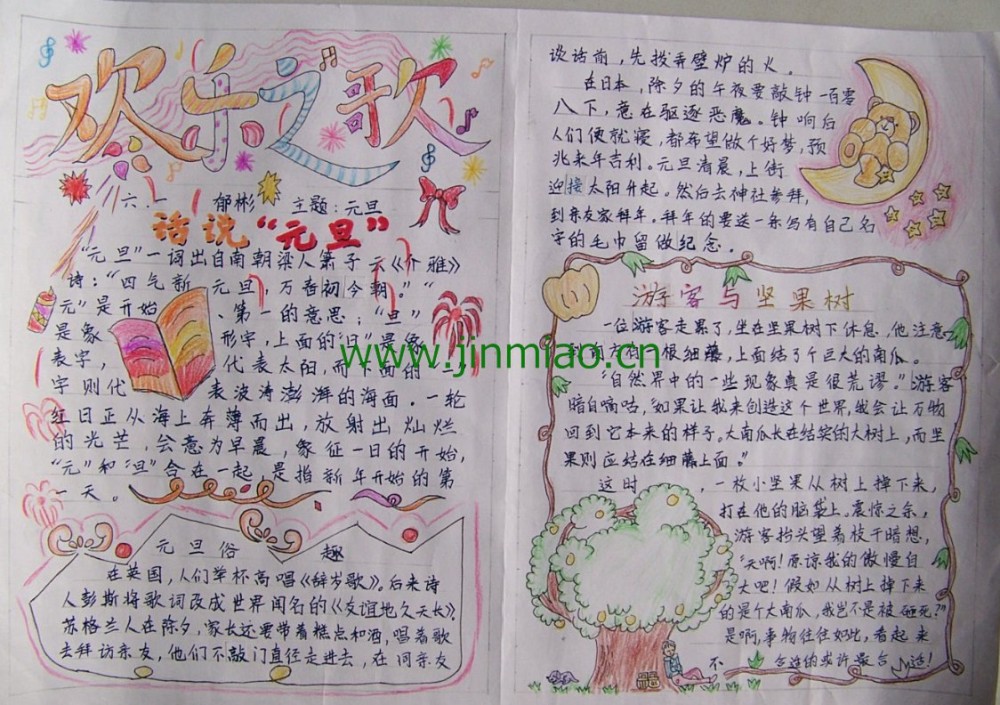 欢乐之歌
六. 郁彬 主题:元旦
话说“元旦”
“元旦”一词出自南朝梁人萧子云《介雅》
诗:“四气新元旦,万寿初今朝。”“
元”是开始、第一的意思;“旦”
是象形字,上面的“日”是象
表字,代表太阳,而下面的“一”
字则代表波涛澎湃的海面.一轮
红日正从海上奔薄而出,放射出灿烂
的光芒,会意为早晨,象征一日的开始,
“元”和“旦”合在一起,是指新年开始的第
一天。
元旦俗趣
在英国,人们举杯高唱《辞岁歌》.后来诗
人彭斯将歌词改成世界闻名的《友谊地久天长》.
苏格兰人在除夕,家长还要带着糕点和酒,唱着歌
去拜访亲友,他们不敲门直径走进去,在同亲友
谈话前,先拨弄壁炉的火。
在日本,除夕的午夜要敲钟一百零
八下,意在驱逐恶魔。钟响后
人们便就寝,都希望做个好梦,预
兆来年吉利。元旦清晨,上街
迎接太阳升起。然后去神社参拜,
到亲友家拜年.拜年的要送一条写有自己名
字的毛巾留做纪念.
游客与坚果树
一位游客走累了,坐在坚果树下休息,他注意
到前方有很细藤,上面结了个巨大的南瓜。
“自然界中的一些现象真是很荒谬.”游客
暗自嘀咕,“如果让我来创造这个世界,我会让万物
回到它本来的样子.大南瓜长在结实的大树上,而坚
果则应结在细藤上面。”
这时,一枚小坚果从树上掉下来,
打在他的脑袋上。震惊之余,
游客抬头望着枝干暗想,
“天啊!原谅我的傲慢自
大吧!假如从树上掉下来
的是个大南瓜,我岂不是被砸死?”
是啊,事物往往如此,看起来
不合适的或许最合适!
www.jinmiao.cn